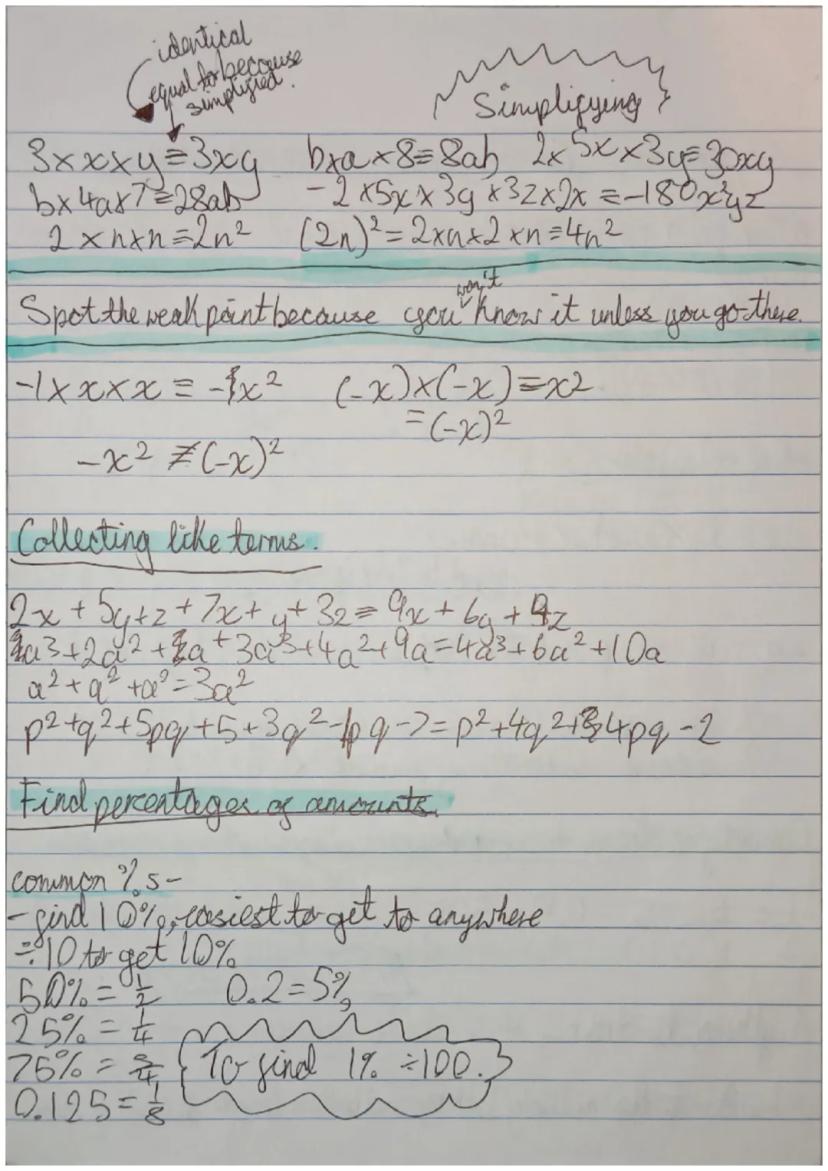 identical
equal to because
simplified.
Simplifying
3×x×y≡3xy b×a×8≡8ab 2×5x×3y≡30xy
b×4a×7≡28ab -2×5x×3y×3z×2x≡-180x²yz
2×n×n≡2n² (2n)²=2×n×2×n≡4n²
Spot the weak point because you won't know it unless you go there.
-1×x×x≡-1x² (-x)×(-x)≡x2
=(-x)²
-x²≢(-x)²
Collecting like terms.
2x+5y+z+7x+y+3z=9x+6y+4z
1a3+2a2+1a+3a3+4a2+9a=4a3+6a2+10a
a2+a2+a2=3a2
p2+q2+5pq+5+3q2-1pq-7=p2+4q2+4pq-2
Find percentages of amounts.
common %s-
-find 10%, easiest to get to anywhere
÷10 to get 10%
50%=½ 0.2=5%
25%=¼
75%=¾ To find 1% ÷100.
0.125=⅛